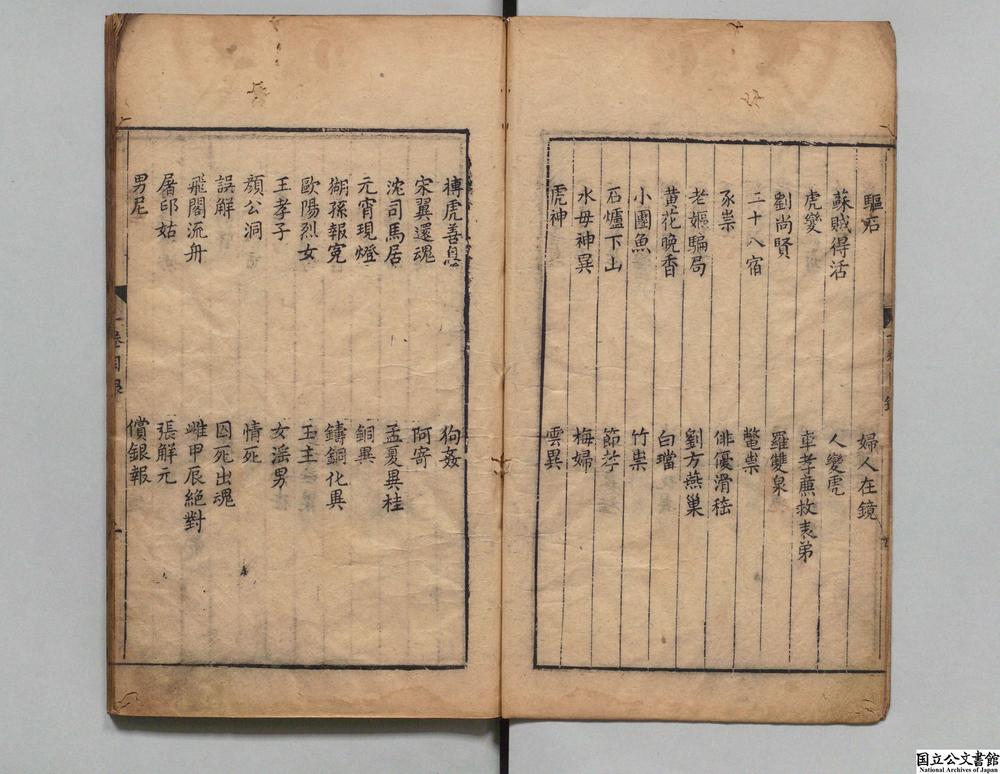 驅店 婦人在鏡
蘇賊得活 人變虎
虎變 車孝廉救表弟
劉尚賢 羅雙泉
二十八宿 鱉祟
豕祟 俳優滑稽
老嫗騙局 劉方燕巢
黄花晚香 白璫
小團魚 竹祟
石爐下山 節孝
水母神異 梅婦
虎神 雲異
摶虎善息 狗姦
宋翼還魂 阿寄
沈司馬居 孟夏異桂
元宵現燈 銅異
猢孫報寃 鑄銅化異
歐陽烈女 玉主
王孝子 女滛男
顏公洞 情死
誤解 囚死出魂
飛閣流舟 雌甲辰絕對
屠印姑 張解元
男尼 償銀報
卷目録
一
国立公文書館
National Archives of Japan